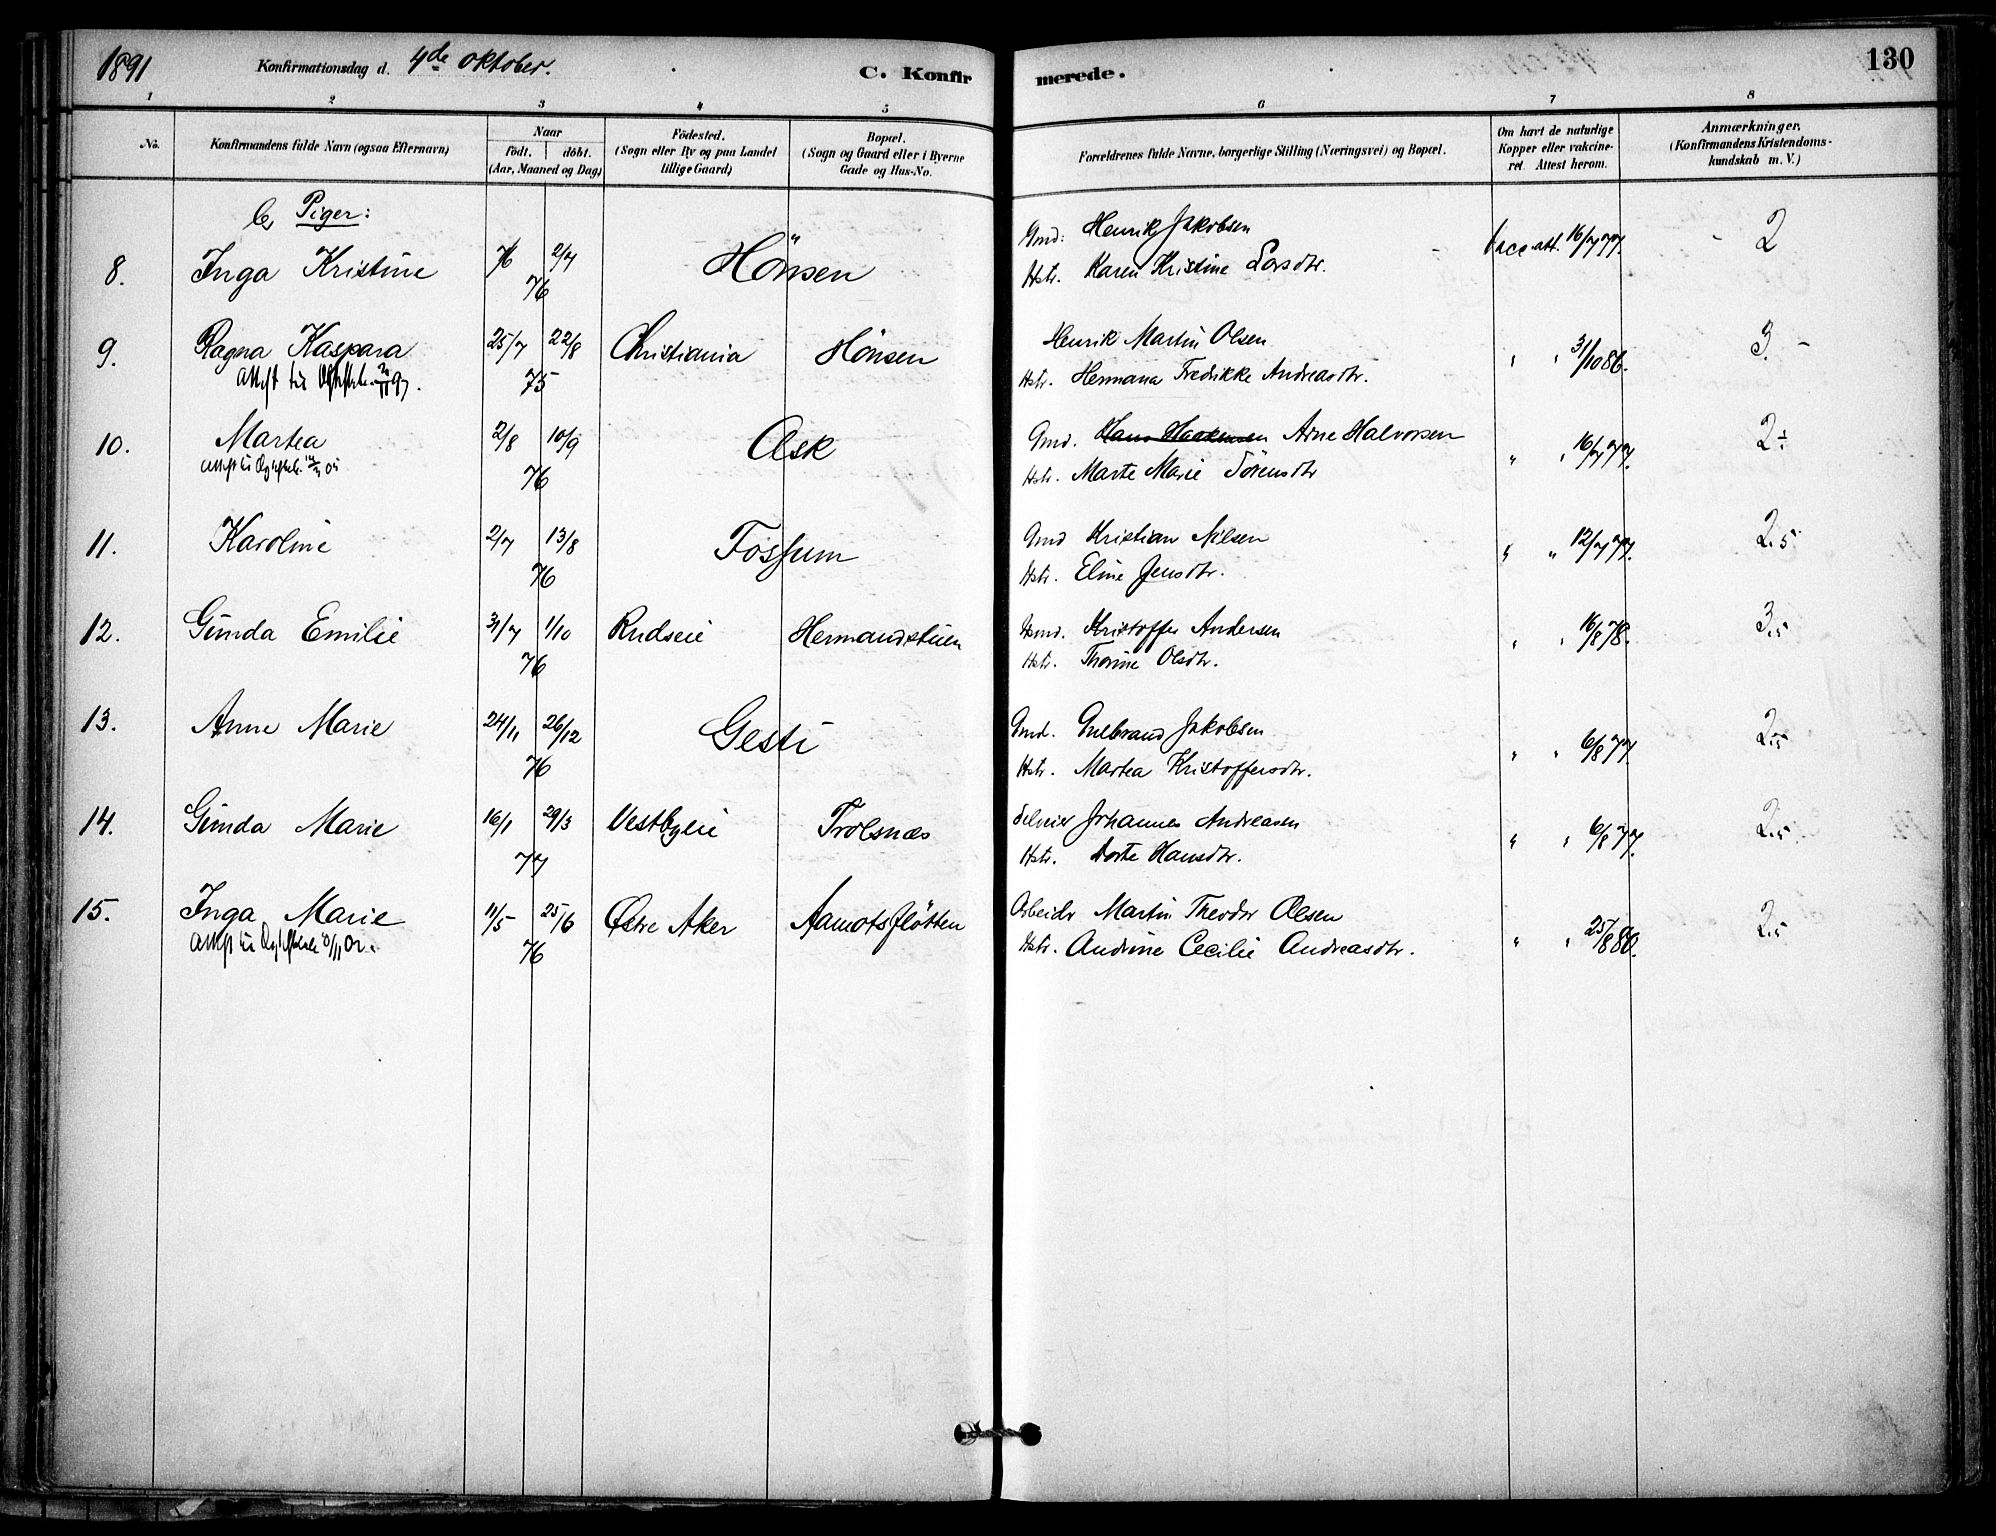 1891 Konfirmationsdag d. 4de oktober. C. Konfirmerede. 130
1 2 3 4 5 6 7 8
No. Konfirmandens fulde Navn (ogsaa Efternavn) Naar født. døbt. (Aar, Maaned og Dag) Födested. (Sogn eller By og paa Landet tillige Gaard) Bopæl. (Sogn og Gaard eller i Byerne Gade og Hus-No. Forældrenes fulde Navne, borgerlige Stilling (Næringsvei) og Bopæl. Om havt de naturlige Kopper eller vakcineret. Attest herom. Anmærkninger. (Konfirmandens Kristendomskundskab m. V.)
b, Piger:
8. Inga Kristine 2/7 76 Hönsen Gmd: Henrik Jakobsen vacc att. 16/7 77. 2
Hstr. Karen Kristine Larsdtr.
9. Ragna Kaspara 25/7 22/8 75 Christiania Hönsen Henrik Martin Olsen " " 31/10 86. 3.
Attest til
Hstr. Hermana Fredrikke Andreasdtr.
10. Martea 2/8 10/9 76 Ask Gmd. Hans Haakensen Arne Halvorsen " " 16/7 77.
Attest til
Hstr. Marte Marie Sörensdtr
11. Karoline 2/7 13/8 76 Fossum Gmd Kristian Nilsen " " 12/7 77. 2.5
Hstr. Eline Jensdtr.
12. Gunda Emilie 31/7 1/10 76 Rudseie Hermandstuen Hmd. Kristoffer Andersen " " 16/8 78. 3.5
Hstr. Thorine Olsdtr.
13. Anne Marie 24/11 26/12 76 Gesti Gmd. Gulbrand Jakobsen " " 6/8 77. 2.5
Hstr. Martea Kristoffersdtr.
14. Gunda Marie 16/1 29/3 77 Vestbyeie Trolsnæs Selveier Johannes Andreasen " " 6/8 77. 2.5
Hstr. Dorte Hansdtr.
15. Inga Marie 11/5 25/6 76 Østre Aker Aamotsfløtten Arbeidr Martin Theodor Olsen " " 25/8 86. 2.5
Attest til
Hstr. Andrine Cecilie Andreasdtr.